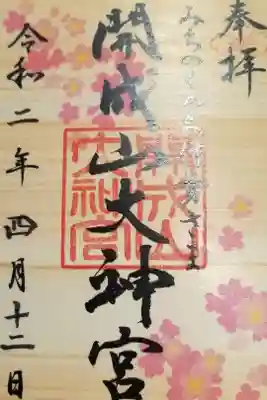 奉拝
みちのくのお伊勢さま
開成山大神宮
開成山
大神宮
令和二年 四月十二日